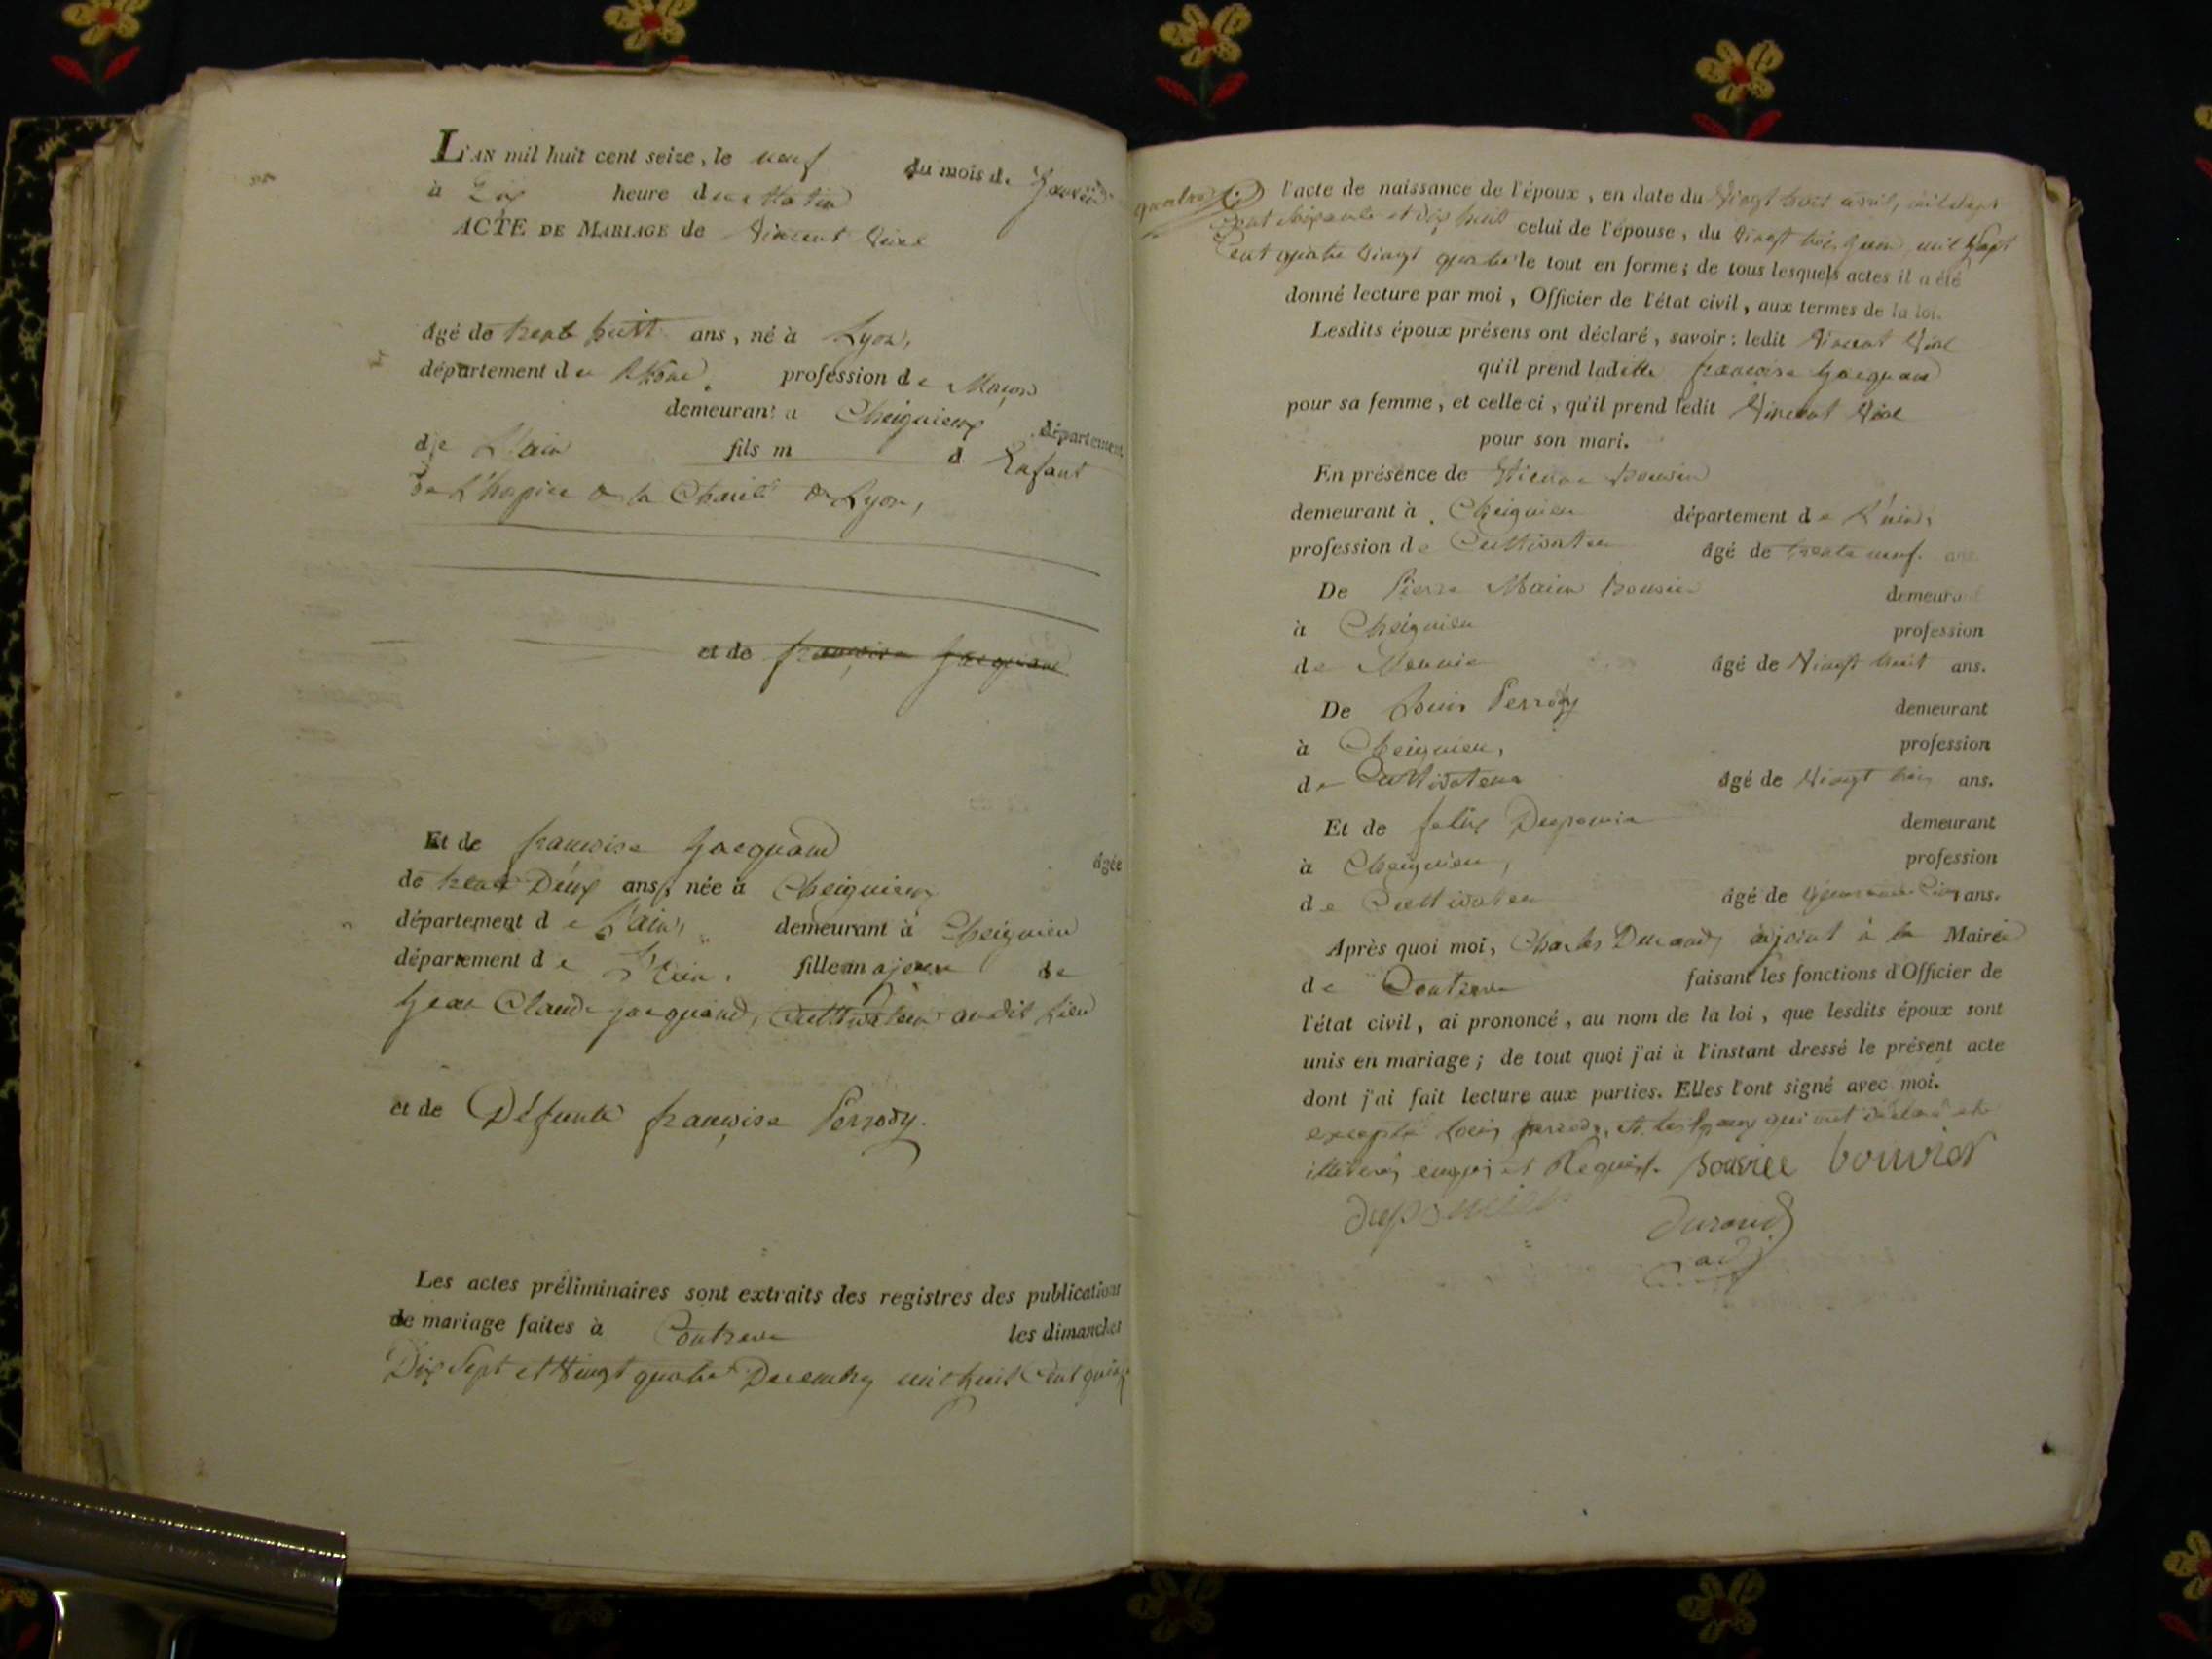 L'AN mil huit cent seize, le neuf du mois de Janvier
à Dix heure du Matin
ACTE DE MARIAGE de Vincent Viel
âgé de trente huit ans, né à Lyon,
département du Rhône, profession de Maçon
demeurant à Cheignieux département
de L'ain fils m d Enfant
de L'hospice de la Charité de Lyon,
et de françoise Jacquand
Et de francoise Jacquand âgée
de trente Deux ans, née à Cheignieux
département de L'ain, demeurant à Cheignieu
département de L'ain, fille majeure de
Jean Claude jacquand, Cultivateur audit Lieu
et de Défunte françoise Perrody.
Les actes préliminaires sont extraits des registres des publications
de mariage faites à Contrevoz les dimanches
Dix Sept et Vingt quatre Decembre mil huit Cent quinze
l'acte de naissance de l'époux, en date du Vingt huit avril, mil sept
Cent soixante et dix huit celui de l'épouse, du Vingt trois Juin mil Sept
Cent quatre Vingt quatre le tout en forme; de tous lesquels actes il a été
donné lecture par moi, Officier de l'état civil, aux termes de la loi.
Lesdits époux présens ont déclaré, savoir: ledit Vincent Viel
qu'il prend laditte francoise Jacquand
pour sa femme, et celle ci, qu'il prend ledit Vincent Viel
pour son mari.
En présence de Etienne bouvier
demeurant à Cheignieu département de L'ain,
profession de Cultivateur âgé de trente neuf. ans
De Pierre Marin bouvier demeurant
à Cheignieu profession
de Meunier âgé de Vingt huit ans.
De Louis Perrody demeurant
à Cheignieu, profession
de Cultivateur âgé de Vingt trois ans.
Et de felix demeurant
à Cheignieu, profession
de Cultivateur âgé de Cinq ans.
Après quoi moi, Charles Durand, adjoint à la Mairie
de Contrevoz faisant les fonctions d'Officier de
l'état civil, ai prononcé, au nom de la loi, que lesdits époux sont
unis en mariage; de tout quoi j'ai à l'instant dressé le présent acte
dont j'ai fait lecture aux parties. Elles l'ont signé avec moi.
excepté Louis perrody, et les Epoux qui ont déclaré etre
illiterés enquis et Requis. bouvier bouvier
durand
adj